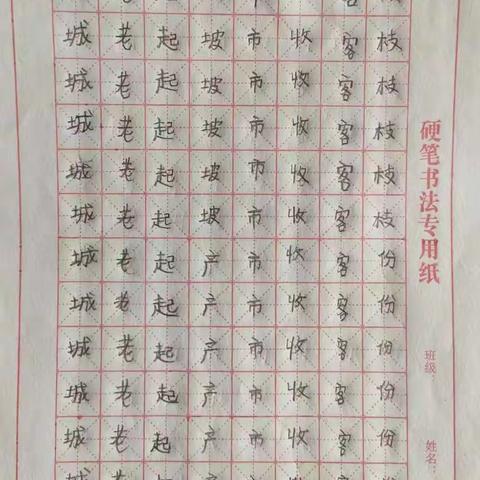 城老起坡市收客枝
城老起坡市收客枝
城老起坡市收客枝
城老起坡市收客枝
城老起坡市收客枝
城老起产市收客份
城老起产市收客份
城老起产市收客份
城老起产市收客份
城老起产市收客份
硬笔书法专用纸
班级
姓名: